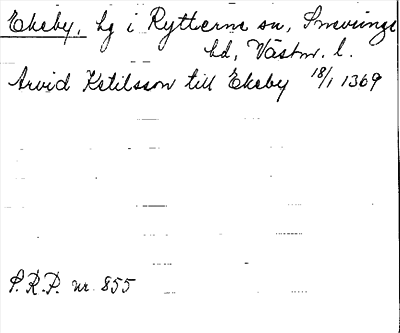 Ekeby, hg i Rytterne sn, Snevringe
hd, Västm. l.
Arvid Ketilsson till Ekeby 18/1 1369
S.R.P. nr 855